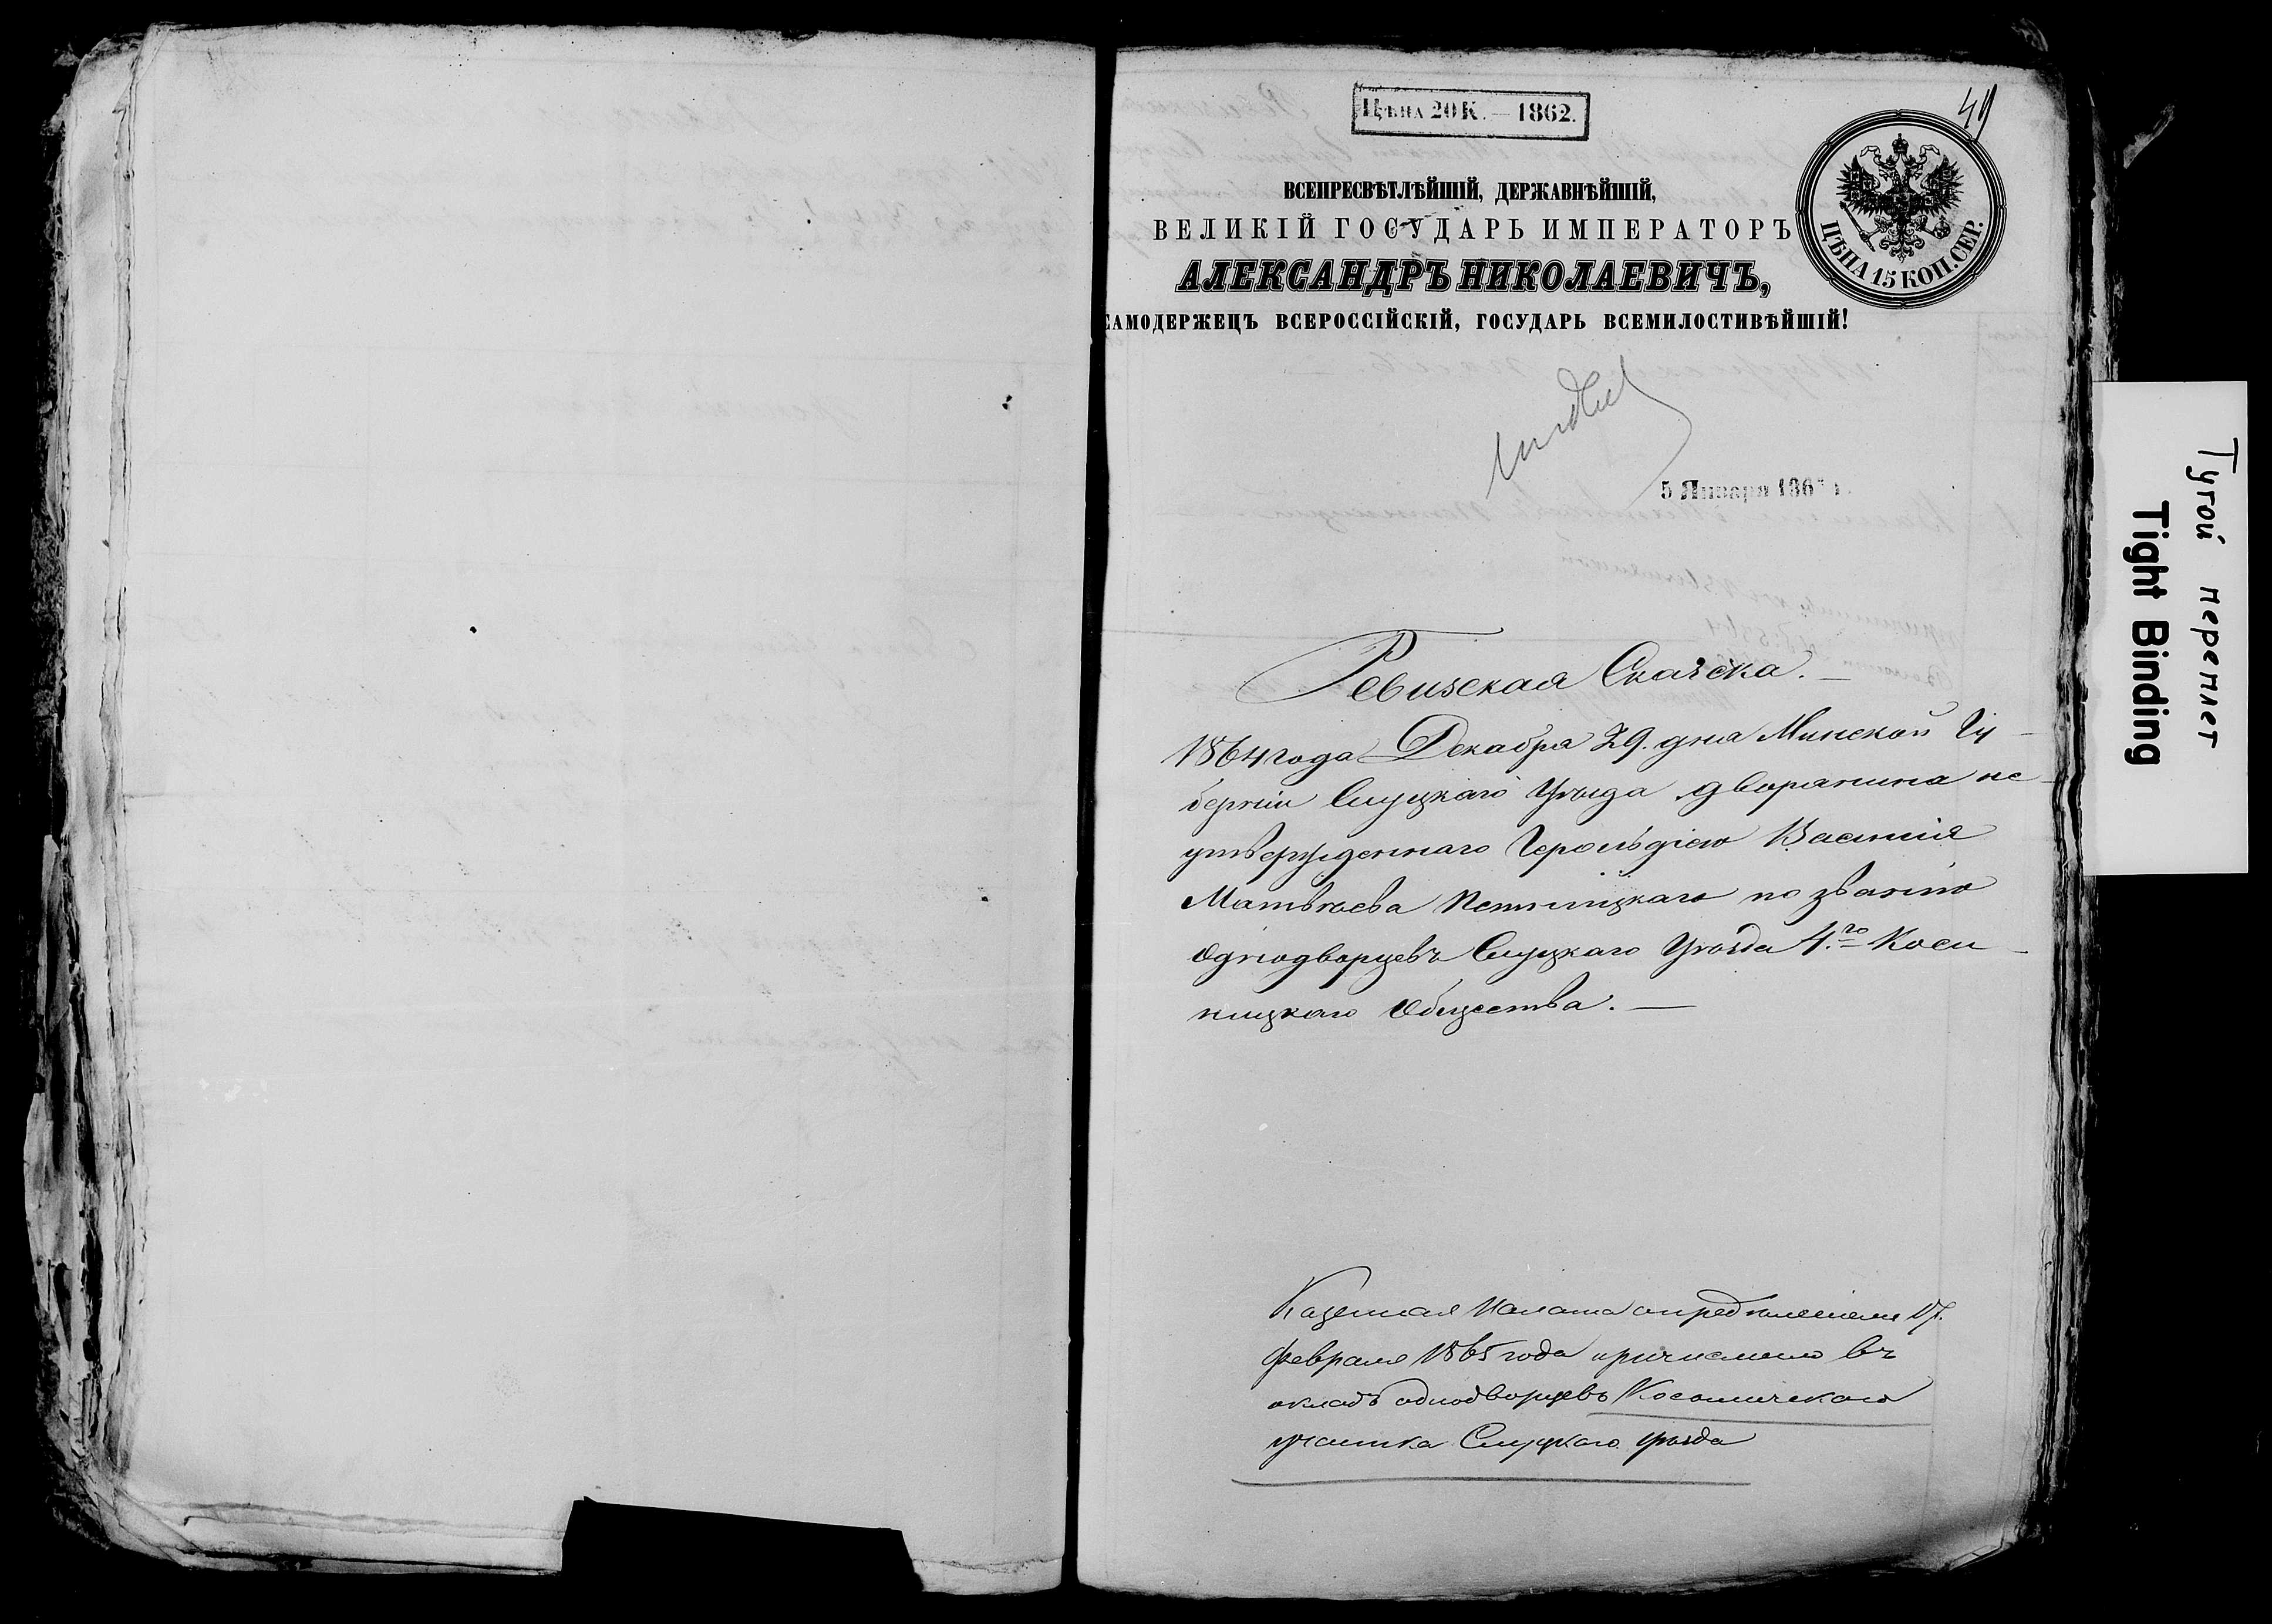 49
Цѣна 20 К. — 1862.
ЦѢНА 15 КОП. СЕР.
ВСЕПРЕСВѢТЛѢЙШІЙ, ДЕРЖАВНѢЙШІЙ,
ВЕЛИКІЙ ГОСУДАРЬ ИМПЕРАТОРЪ
АЛЕКСАНДРЪ НИКОЛАЕВИЧЪ,
САМОДЕРЖЕЦЪ ВСЕРОССІЙСКІЙ, ГОСУДАРЬ ВСЕМИЛОСТИВѢЙШІЙ!
5 Января 186
Ревизская Сказска. —
1864 года Декабря 29. дня Минской Гу-
берніи Слуцкаго Уѣзда дворянина не-
утвержденнаго Герольдіею Василія
Матвѣева по званію
Однодворцевъ Слуцкаго Уѣзда 4.го Коси-
ницкаго Общества. —
Казенная Палата опредѣленіемъ 17.
Февраля 1865 года причислила въ
окладъ однодворцевъ
участка Слуцкаго уѣзда
Тугой переплет
Tight Binding